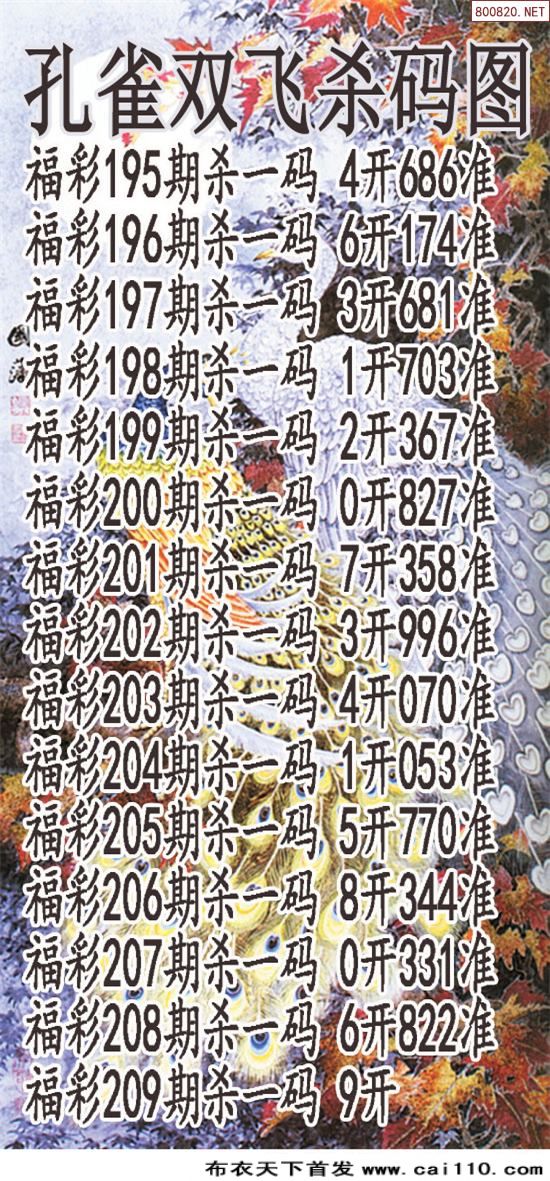 800820.NET
孔雀双飞杀码图
福彩195期杀一码 4开686准
福彩196期杀一码 6开174准
福彩197期杀一码 3开681准
福彩198期杀一码 1开703准
福彩199期杀一码 2开367准
福彩200期杀一码 0开827准
福彩201期杀一码 7开358准
福彩202期杀一码 3开996准
福彩203期杀一码 4开070准
福彩204期杀一码 1开053准
福彩205期杀一码 5开770准
福彩206期杀一码 8开344准
福彩207期杀一码 0开331准
福彩208期杀一码 6开822准
福彩209期杀一码 9开
布衣天下首发 www.cai110.com